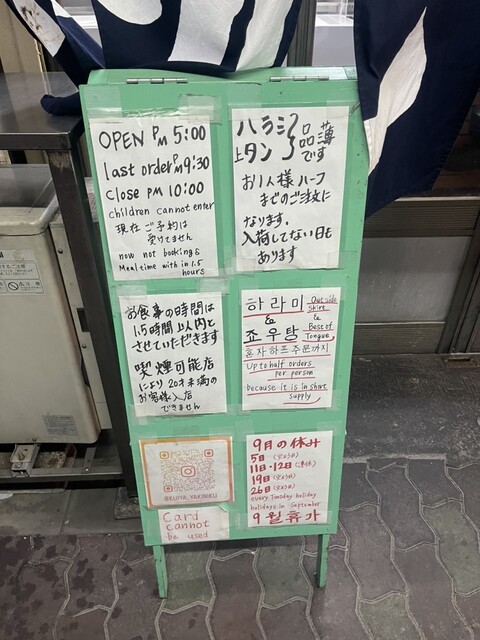 OPEN PM 5:00
last order PM 9:30
close PM 10:00
children cannot enter
現在ご予約は
受けてません
now not bookings
Meal time with in 1.5
hours
ハラミ
上タン
品薄
です
お1人様ハーフ
までのご注文に
なります。
入荷してない日も
あります
お食事の時間は
1.5時間以内と
させていただきます
喫煙可能店
により20才未満の
お客様入店
できません
하라미 Outside
skirt
& &
죠우탕 Best of
Tongue
혼자하프주문까지
up to half orders
per person
because it is in short
supply
Card
cannot
be used
9月の休み
5日(火よう日)
11日・12日(連休)
19日(火よう日)
26日(火よう日)
every Tuesday holiday
holidays in September
9월휴가